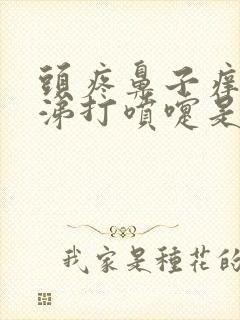 頭疼鼻子癢
涕打噴嚏是
我家是種花的